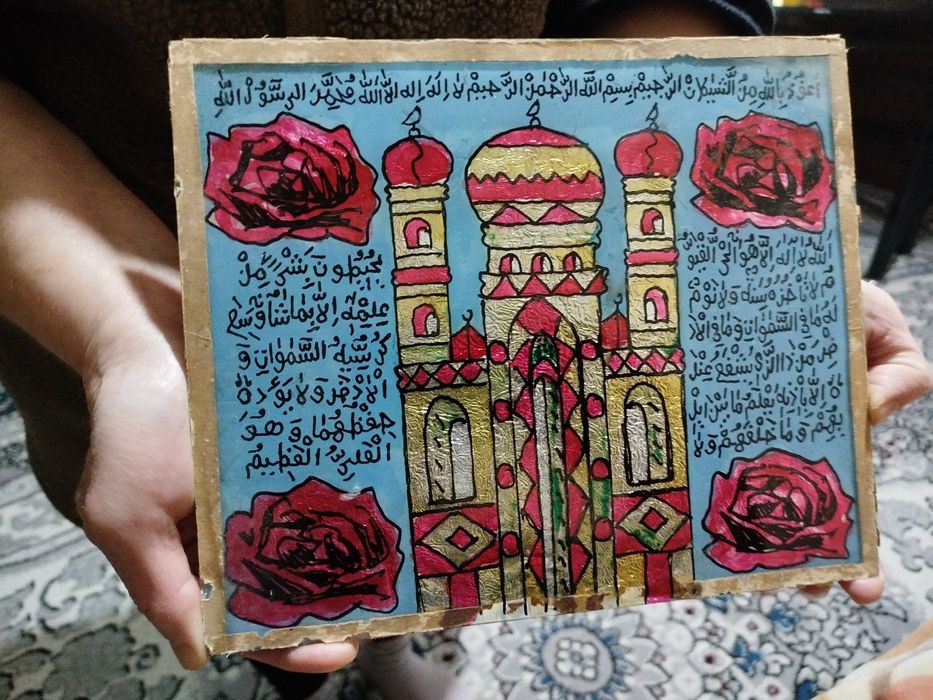 اعوذ بالله من الشيطان الرجيم بسم الله الرحمن الرحيم لا اله اله الا الله محمد الرسول الله
الله لا اله الا هو الحي القيو
م لا تاخذه سنة ولا نوم
له ما في السموات وما في الار
ض من ذا الذي يشفع عند
ه الا باذنه يعلم ما بين ايد
يهم وما خلفهم ولا
يحيطون بشئ من
علمه الا بما شاء وسع
كرسيه السموات و
الارض ولا يؤده
حفظهما و هو
العلي العظيم